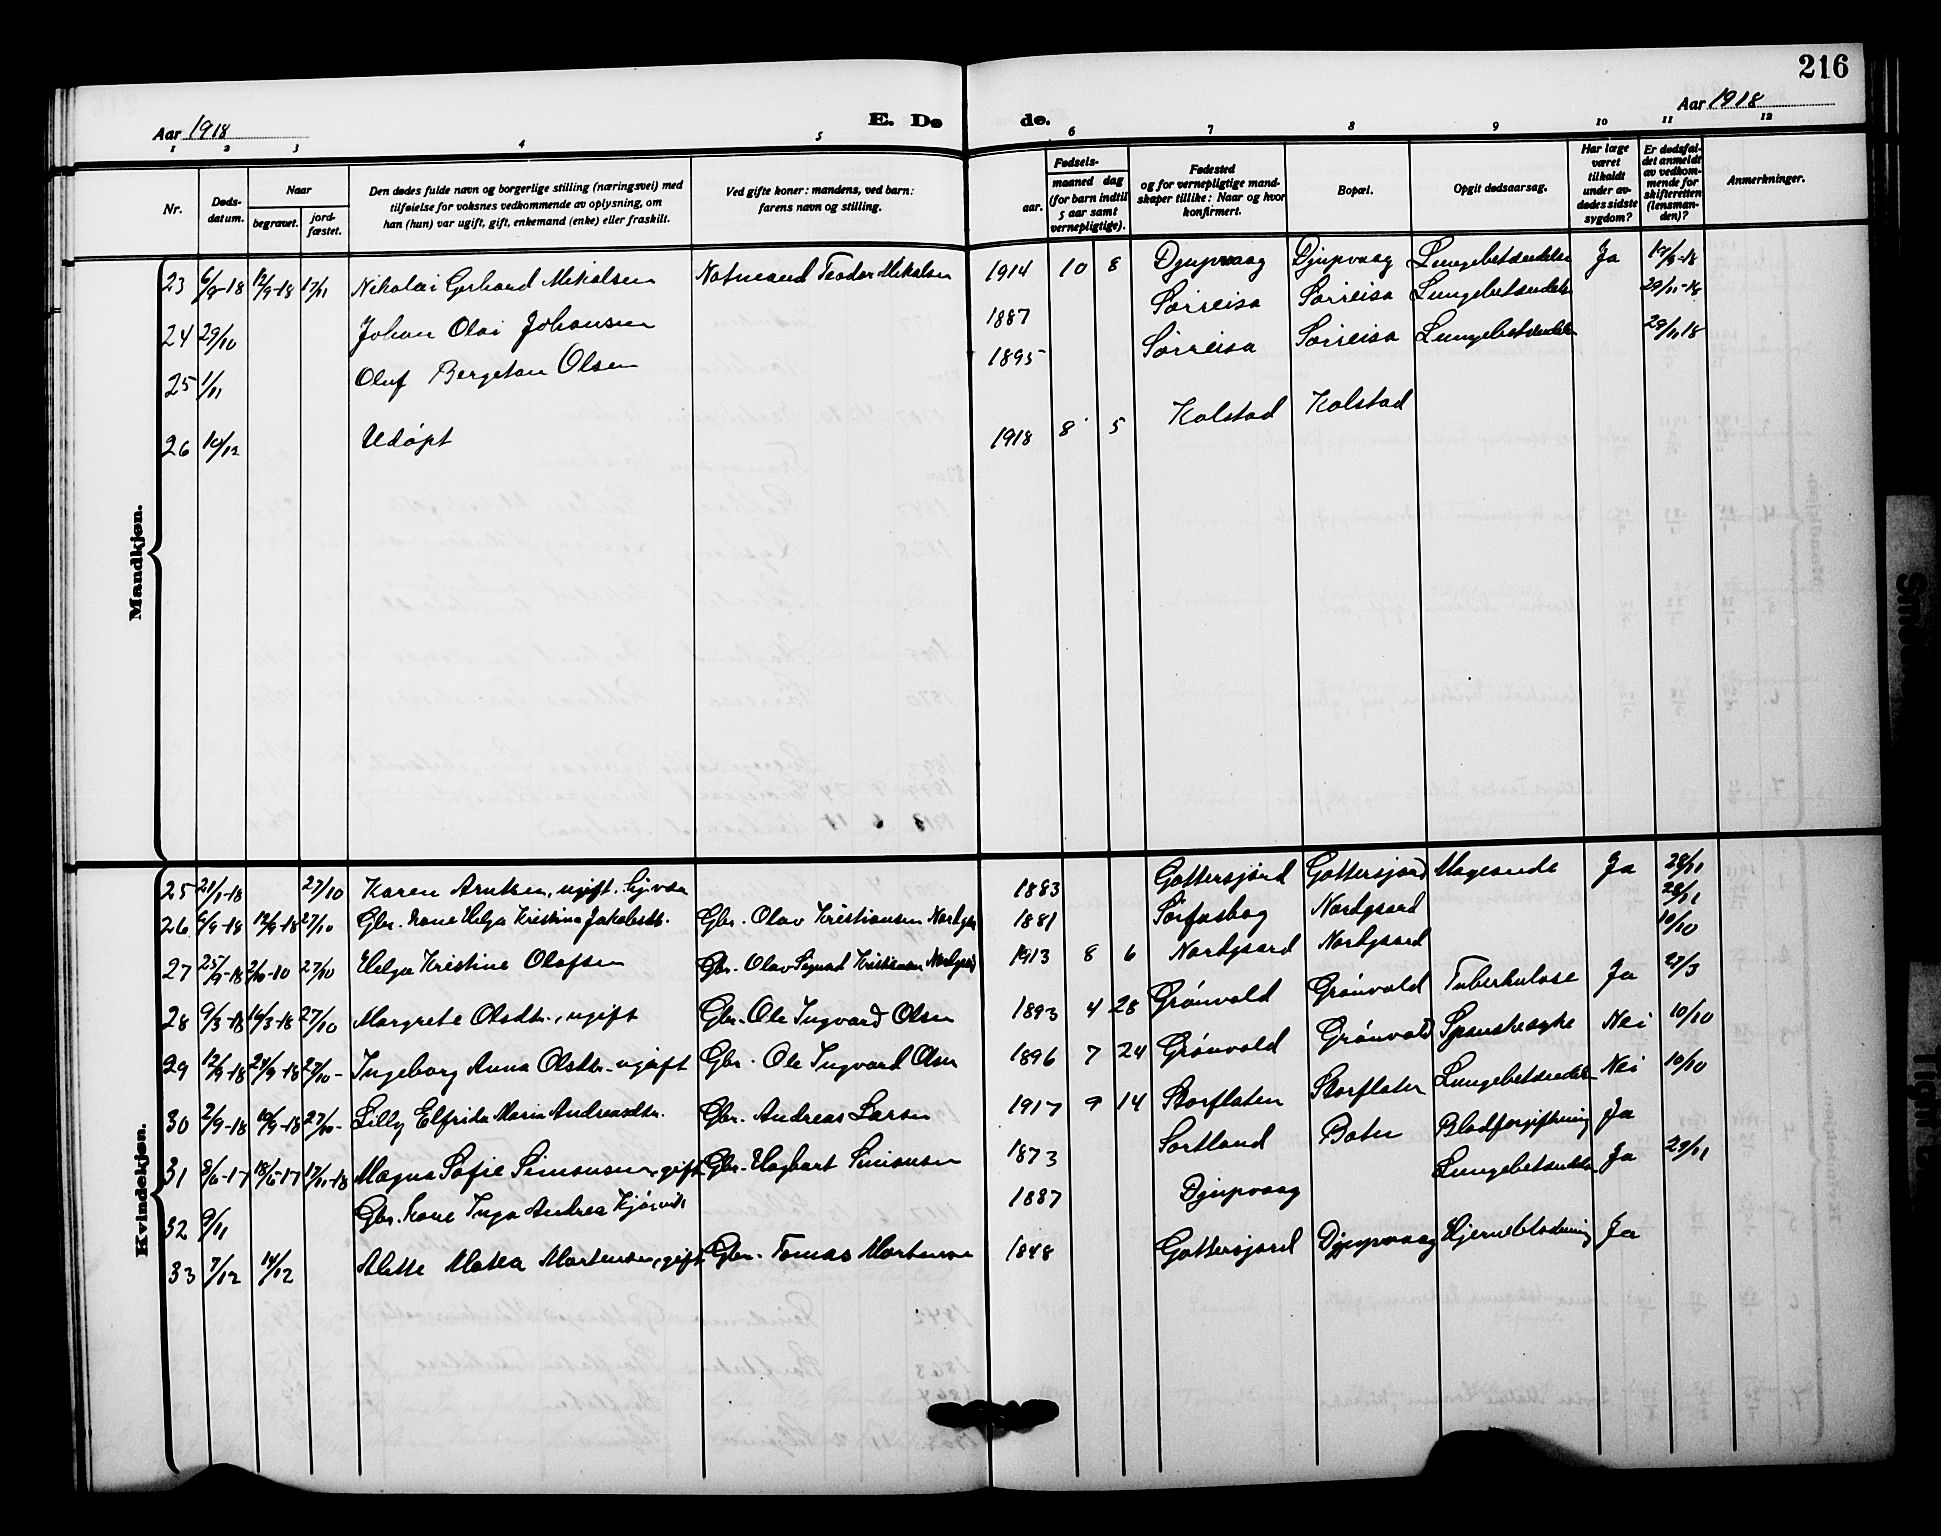 216
Aar 1918
E. Dø
de.
Aar 1918
1 2 3 4 5 6 7 8 9 10 11 12
Nr.
Døds-
datum.
Naar
begravet.
jord-
fæstet.
Den dødes fulde navn og borgerlige stilling (næringsvei) med
tilføielse for voksnes vedkommende av oplysning, om
han (hun) var ugift, gift, enkemand (enke) eller fraskilt.
Ved gifte koner: mandens, ved barn:
farens navn og stilling.
Fødsels-
aar.
maaned dag
(for barn indtil
5 aar samt
vernepligtige).
Fødested
og for vernepligtige mand-
skaper tillike: Naar og hvor
konfirmert.
Bopæl.
Opgit dødsaarsag.
Har læge
været
tilkaldt
under av-
dødes sidste
sygdom?
Er dødsfal-
det anmeldt
av vedkom-
mende for
skifteretten
(lensman-
den)?
Anmerkninger.
Mandkjøn.
23 6/9-18 12/9-18 17/11 Nikolai Gerhard Mikalsen Notmand Teodor Mikalsen 1914 10 8 Djupvaag Djupvaag Lungebetændelse Ja 19/9-18
24 29/10 Johan Olai Johansen 1887 Sørreisa Sørreisa Lungebetændelse 29/11-18
25 1/11 Oluf Bergeton Olsen 1895 Sørreisa Sørreisa Lungebetændelse 29/11 18
26 14/12 Udøpt 1918 8 5 Kolstad Kolstad
Kvindekjøn.
25 21/1-18 27/10 Karen Arntsen, ugift. 1883 Gottersjord Gottersjord Ja 28/11
26 6/9-18 12/9-18 27/10 Gbr. kone Helga Kristina Jakobsdt. Gbr. Olav Kristiansen Nordgaard 1881 Nordgaard 28/11
27 25/9-18 27/10 Helga Kristine Olafsen Gbr. Olav Sigvad Kristiansen Nordgaard 1913 8 6 Nordgaard Nordgaard 10/10
28 9/3-18 14/3-18 27/10 Margrete Olsdtr., ugift Gbr. Ole Ingvard Olsen 1893 4 28 Grønvold Grønvold Tuberkulose Ja 27/3
29 12/9-18 24/9-18 27/10- Ingeborg Anna Olsdtr. ugift Gbr. Ole Ingvard Olsen 1896 7 24 Grønvold Grønvold Spanskesyke Nei 10/10
30 2/9-18 10/9-18 27/10- Lilly Elfrida Marie Andreasdtr. Gbr. Andreas Larsen 1917 9 14 Storflaten Storflaten Lungebetændelse Nei 10/10
31 8/6-17 18/6-17 17/11-18 Magna Sofie Simonsen, gift Gbr. Hagbart Simonsen 1873 Sortland Boten Blodforgiftning Ja
32 9/11 Gbr. kone Inga Andrea Kjørvik 1887 Djupvaag Lungebetændelse Ja 29/11
33 7/12 14/12 Alette Matea Mortensen, gift Gbr. Tomas Mortensen 1848 Gottersjord Djupvaag Hjerneblødning Ja